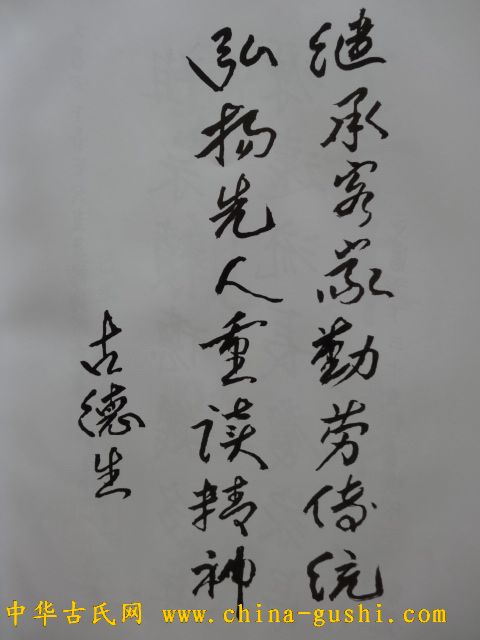 继承客家勤劳传统
弘扬先人重读精神
古德生
中华古氏网 www.china-gushi.com